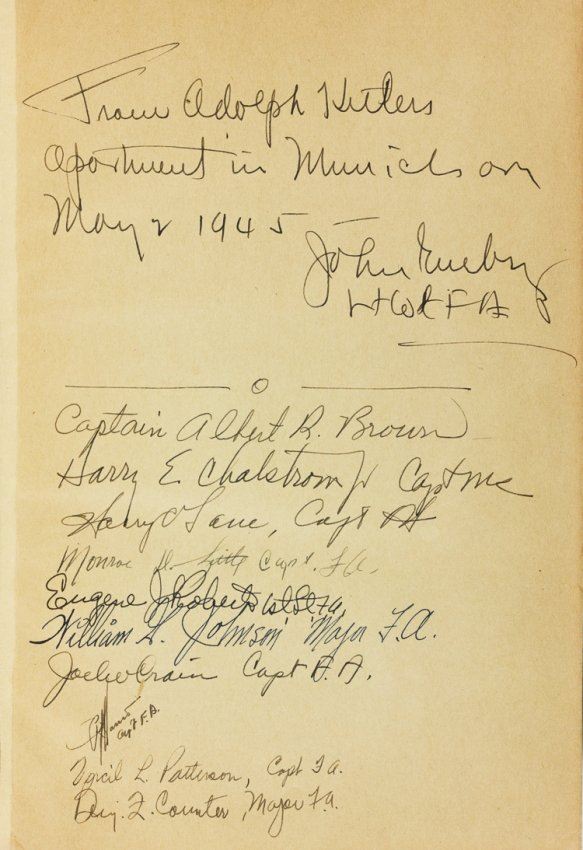 From Adolph Hitlers
apartment in Munich on
May 2 1945
John
Lt Col F A
Captain Albert R. Brown
Harry E. Chalstrom Jr Capt MC
Lane, Capt FA
Monroe D. Little Capt. F.A.
Eugene J. Roberts 1st Lt FA,
William H. Johnson Major F.A.
Crain Capt F.A.
Capt F.A.
Virgil L. Patterson, Capt FA.
Benj. F. Counter, Major FA.